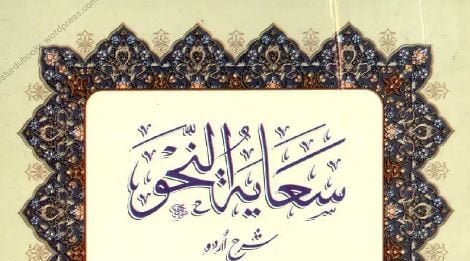 sturdubooks.wordpress.com
سعاية النحو
شرح اُردو